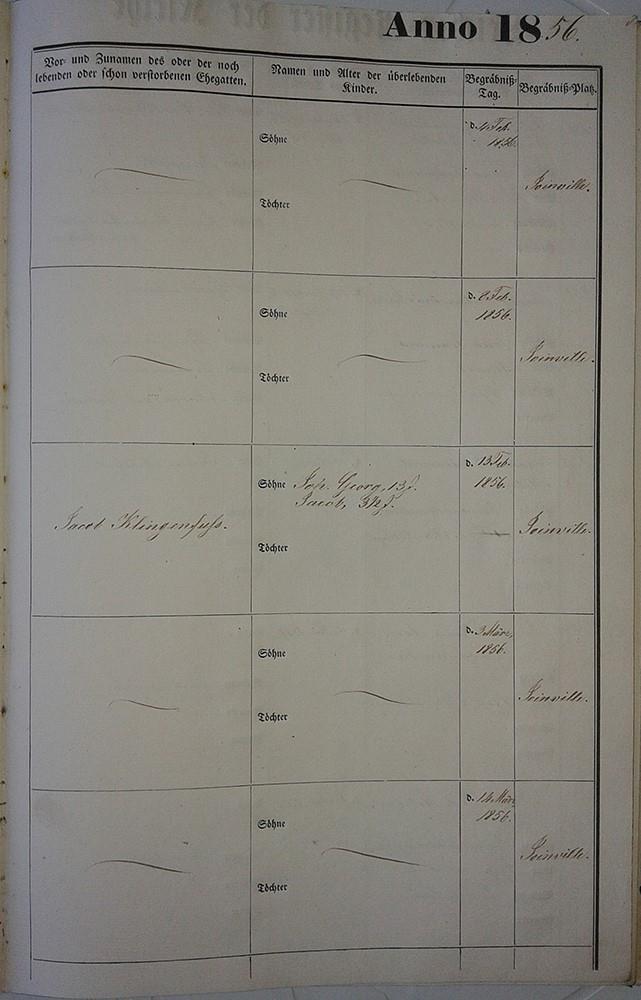 Anno 1856.
Vor- und Zunamen des oder der noch
lebenden oder schon verstorbenen Ehegatten.
Namen und Alter der überlebenden
Kinder.
Begräbniß-
Tag.
Begräbniß-Platz.
Söhne
Töchter
d. 4 Feb.
1856.
Joinville.
Söhne
Töchter
d. 8 Feb.
1856.
Joinville.
Jacob Klingenfuss.
Söhne Joh. Georg, 13 J.
Jacob, 3½ J.
Töchter
d. 13 Feb.
1856.
Joinville.
Söhne
Töchter
d. 3 März,
1856.
Joinville.
Söhne
Töchter
d. 14 März
1856.
Joinville.